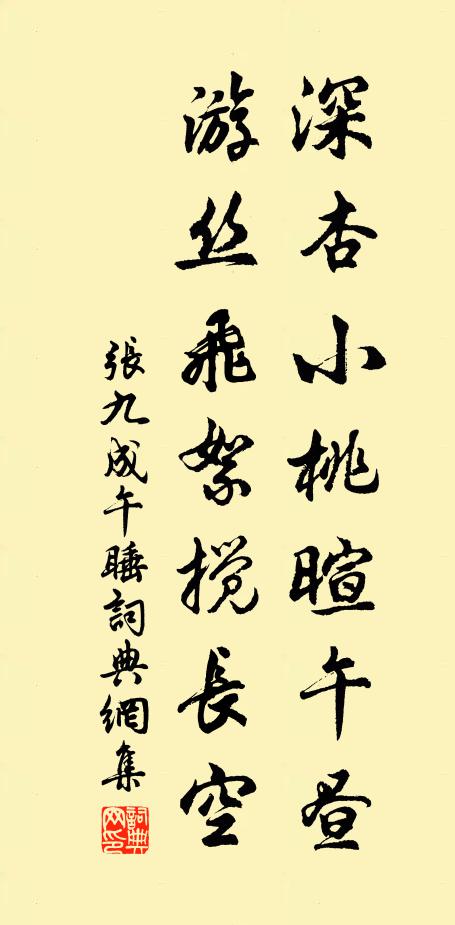 深杏小桃暄午昼
游丝飛絮搅長空
張九成午睡詞典網集
詞典网印